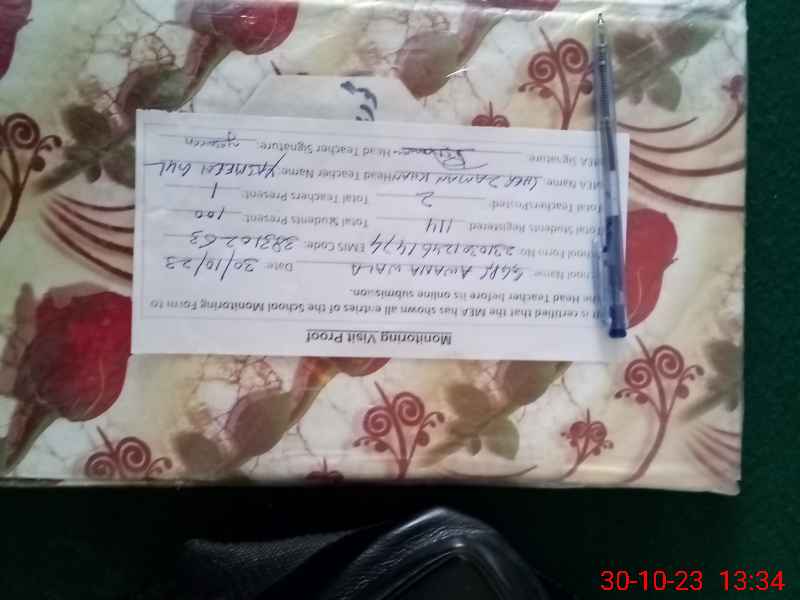 Monitoring Visit Proof
It is certified that the MEA has shown all entries of the School Monitoring Form to
the Head Teacher before its online submission.
School Name: GGPS AWANA WALA Date: 30/10/23
School Form No: 23103012461474 EMIS Code: 38310263
Total Students Registered: 114 Total Students Present: 100
Total Teachers Posted: 2 Total Teachers Present: 1
MEA Name: SHER ZAMAN KHAN Head Teacher Name: YASMEEN GUL
MEA Signature: Head Teacher Signature: Yasmeen
30-10-23 13:34